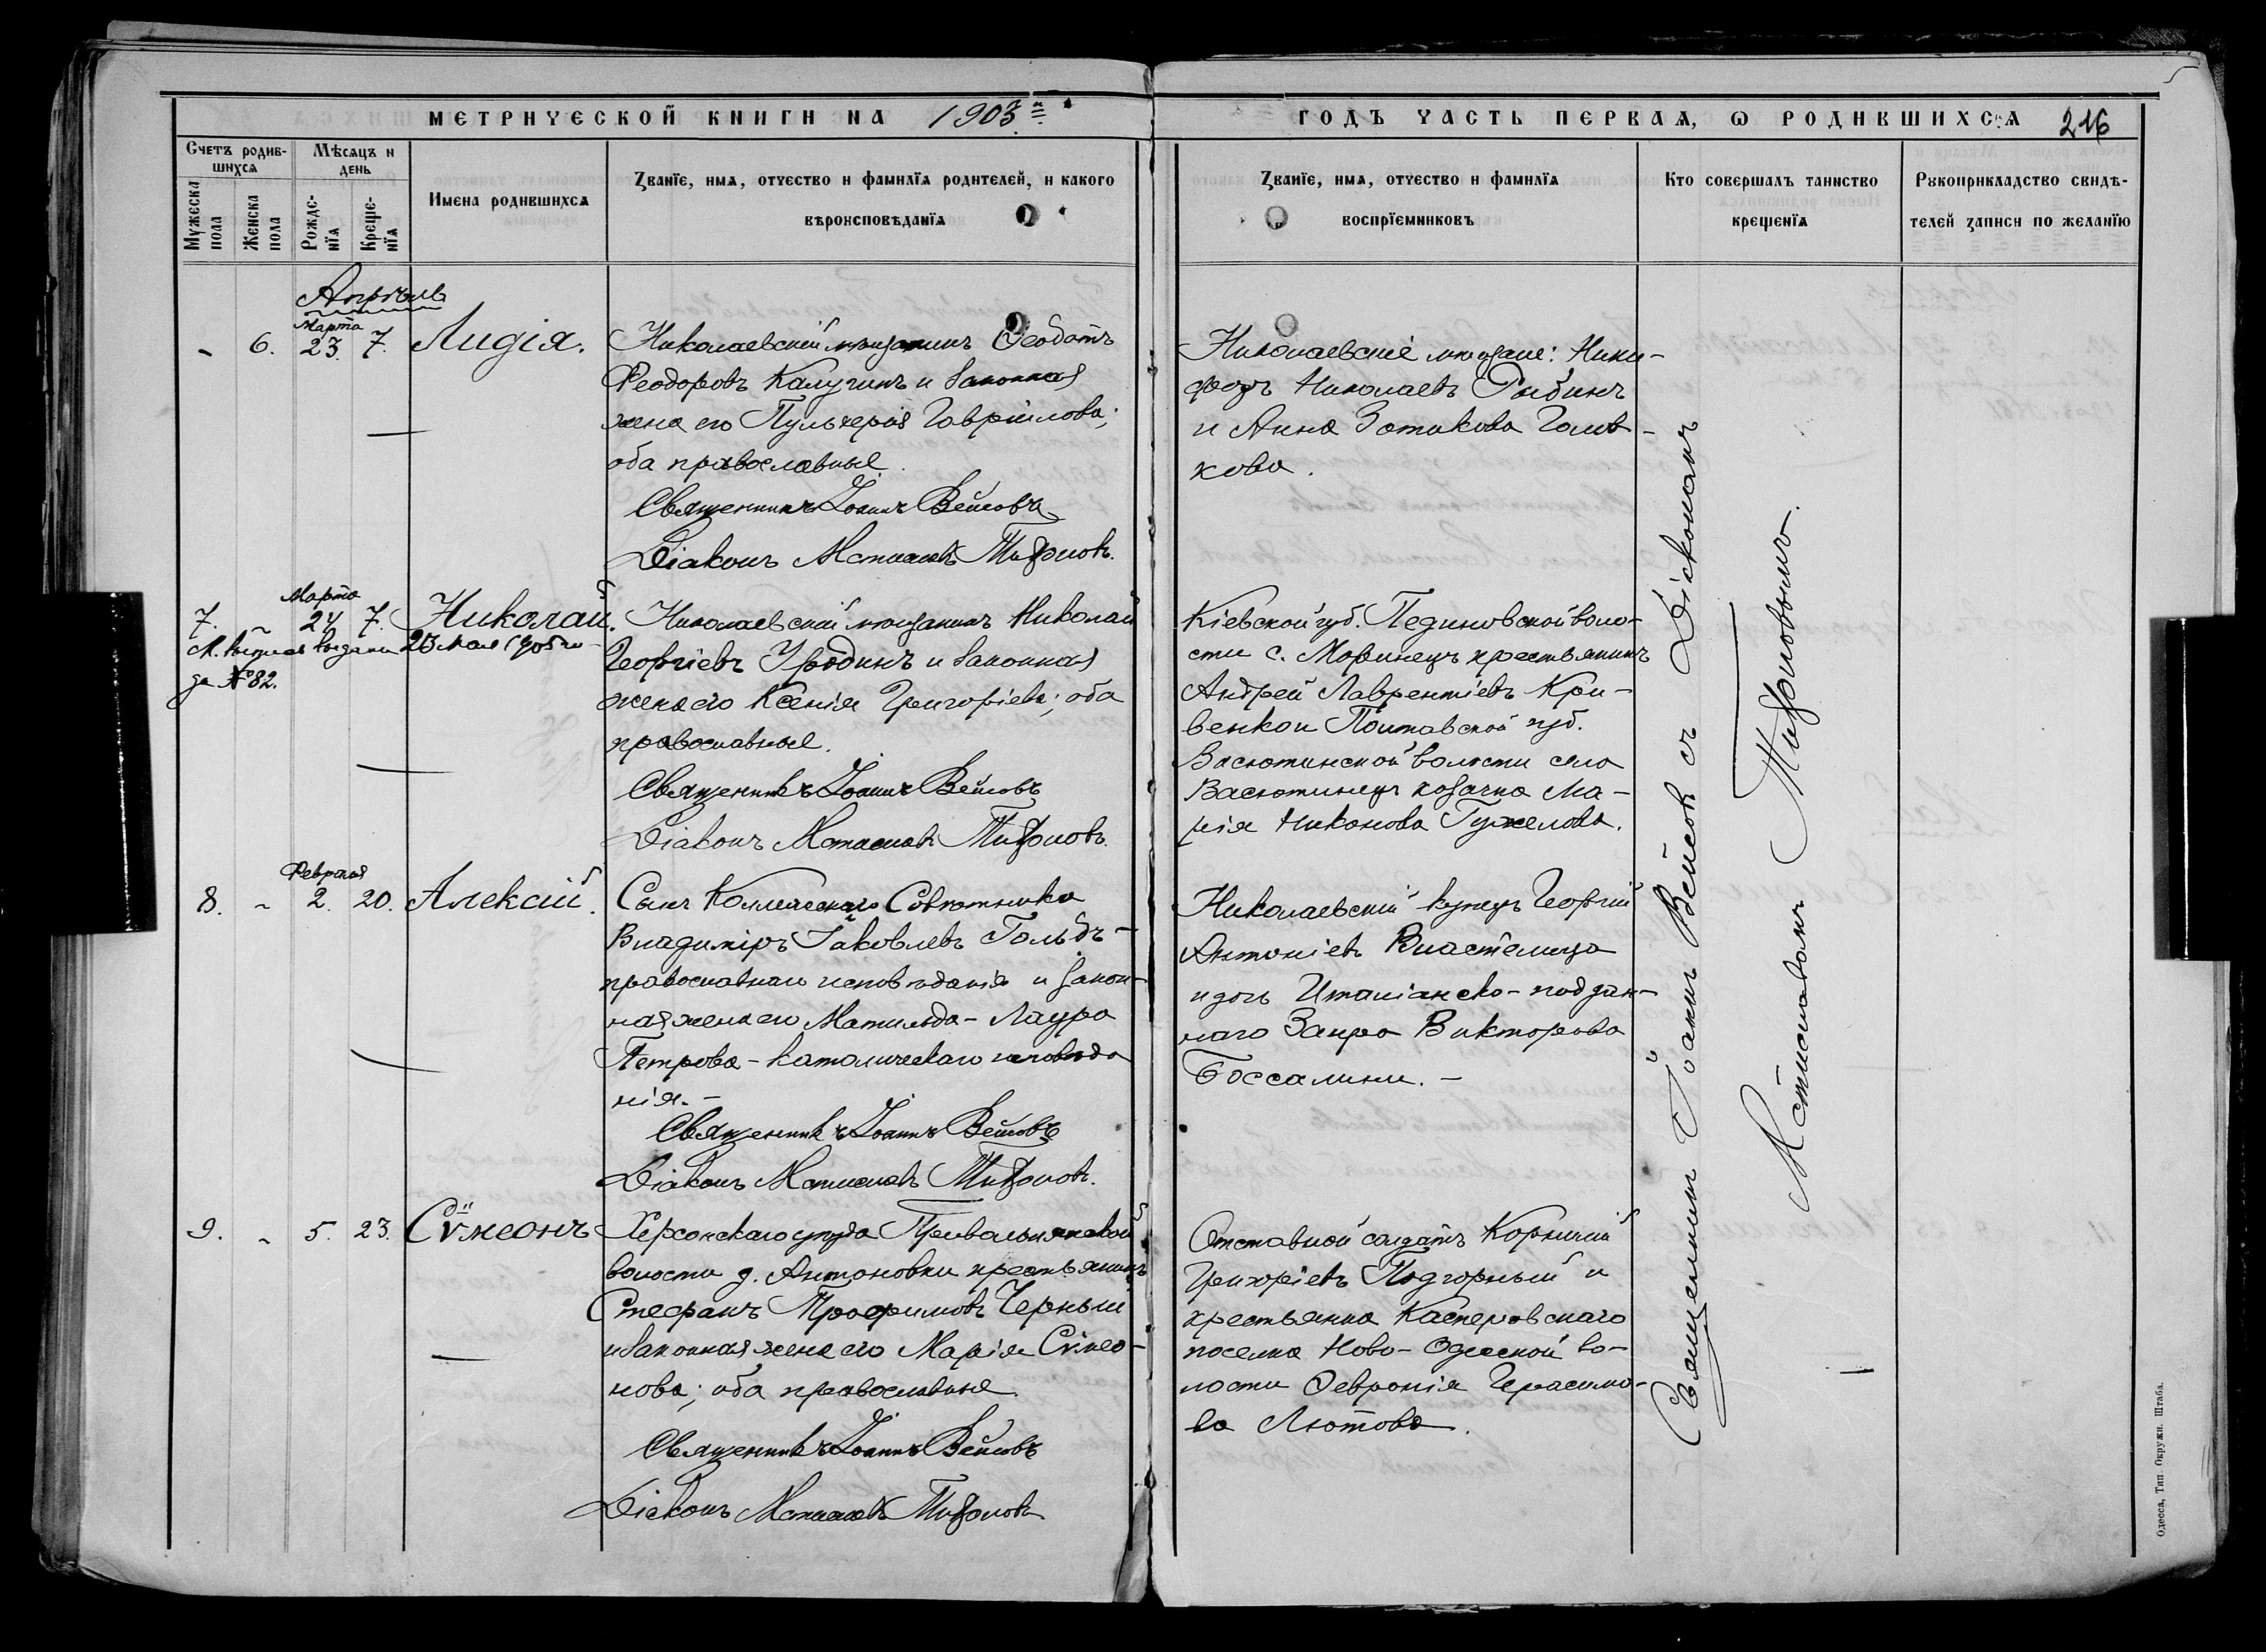 МЕТРИЧЕСКОЙ КНИГИ НА 1903й
ГОДЪ ЧАСТЬ ПЕРВАЯ, Ѡ РОДИВШИХСЯ 216
Счетъ родив-
шихся
Мужеска
пола
Женска
пола
Мѣсяцъ и
день
Рожде-
нїя
Креще-
нїя
Имена родившихся
Званїе, имя, отчество и фамилїя родителей, и какого
вѣроисповѣданїя
Званїе, имя, отчество и фамилїя
воспрїемниковъ
Кто совершалъ таинство
крещенїя
Рукоприкладство свидѣ-
телей записи по желанїю
Апрѣль
Марта
- 6. 23. 7. Лидія.
Николаевскій мѣщанинъ Ѳеодотъ
Ѳеодоровъ Калугинъ и законная
жена его Пульхерія Гавріилова;
оба православные.
Священникъ Іоаннъ Вейсовъ
Діаконъ Мстиславъ Тифоновъ.
Николаевскіе мѣщане: Ники-
форъ Николаевъ Рыбинъ
и Анна Зотикова Голов-
кова.
Марта
7. - 24 7. Николай.
М. выпись выдана 23 мая 1905 го-
да №82.
Николаевскій мѣщанинъ Николай
Георгіевъ Уродинъ и законная
жена его Ксенія Григоріева; оба
православные.
Священникъ Іоаннъ Вейсовъ
Діаконъ Мстиславъ Тифоновъ.
Кіевской губ. Пединовской воло-
сти с. Моринецъ крестьянинъ
Андрей Лаврентіевъ Кри-
венко и Полтавской губ.
Васютинской волости села
Васютинецъ козачка Ма-
рія Никонова Гужелова.
Февраля
8. - 2. 20. Алексій.
Сынъ Коллежскаго Совѣтника
Владиміръ Іаковлевъ Гольдъ-
православнаго исповѣданія и закон-
ная жена его Матильда-Лаура
Петрова-католическаго исповѣда
нія.-
Священникъ Іоаннъ Вейсовъ
Діаконъ Мстиславъ Тифоновъ.
Николаевскій купецъ Георгій
Антоніевъ Властелица
и дочь Италіанско-поддан-
наго Заира Викторова
Боссалини.-
9. - 5. 23. Сѵмеонъ
Херсонскаго уѣзда Привольнянской
волости д. Антоновки крестьянинъ
Стефанъ Трофимовъ Черный
и законная жена его Марія Сѵмео-
нова; оба православные.
Священникъ Іоаннъ Вейсовъ
Діаконъ Мстиславъ Тифоновъ
Отставной солдатъ Корнилій
Григоріевъ Подгорный и
крестьянка Касперовскаго
поселка Ново-Одесской во-
лости Ѳевронія Герасимо-
ва Лютова.
Священникъ Іоаннъ Вейсовъ съ Діакономъ
Мстиславомъ Тифоновымъ.
Одесса, Тип. Окружн. Штаба.